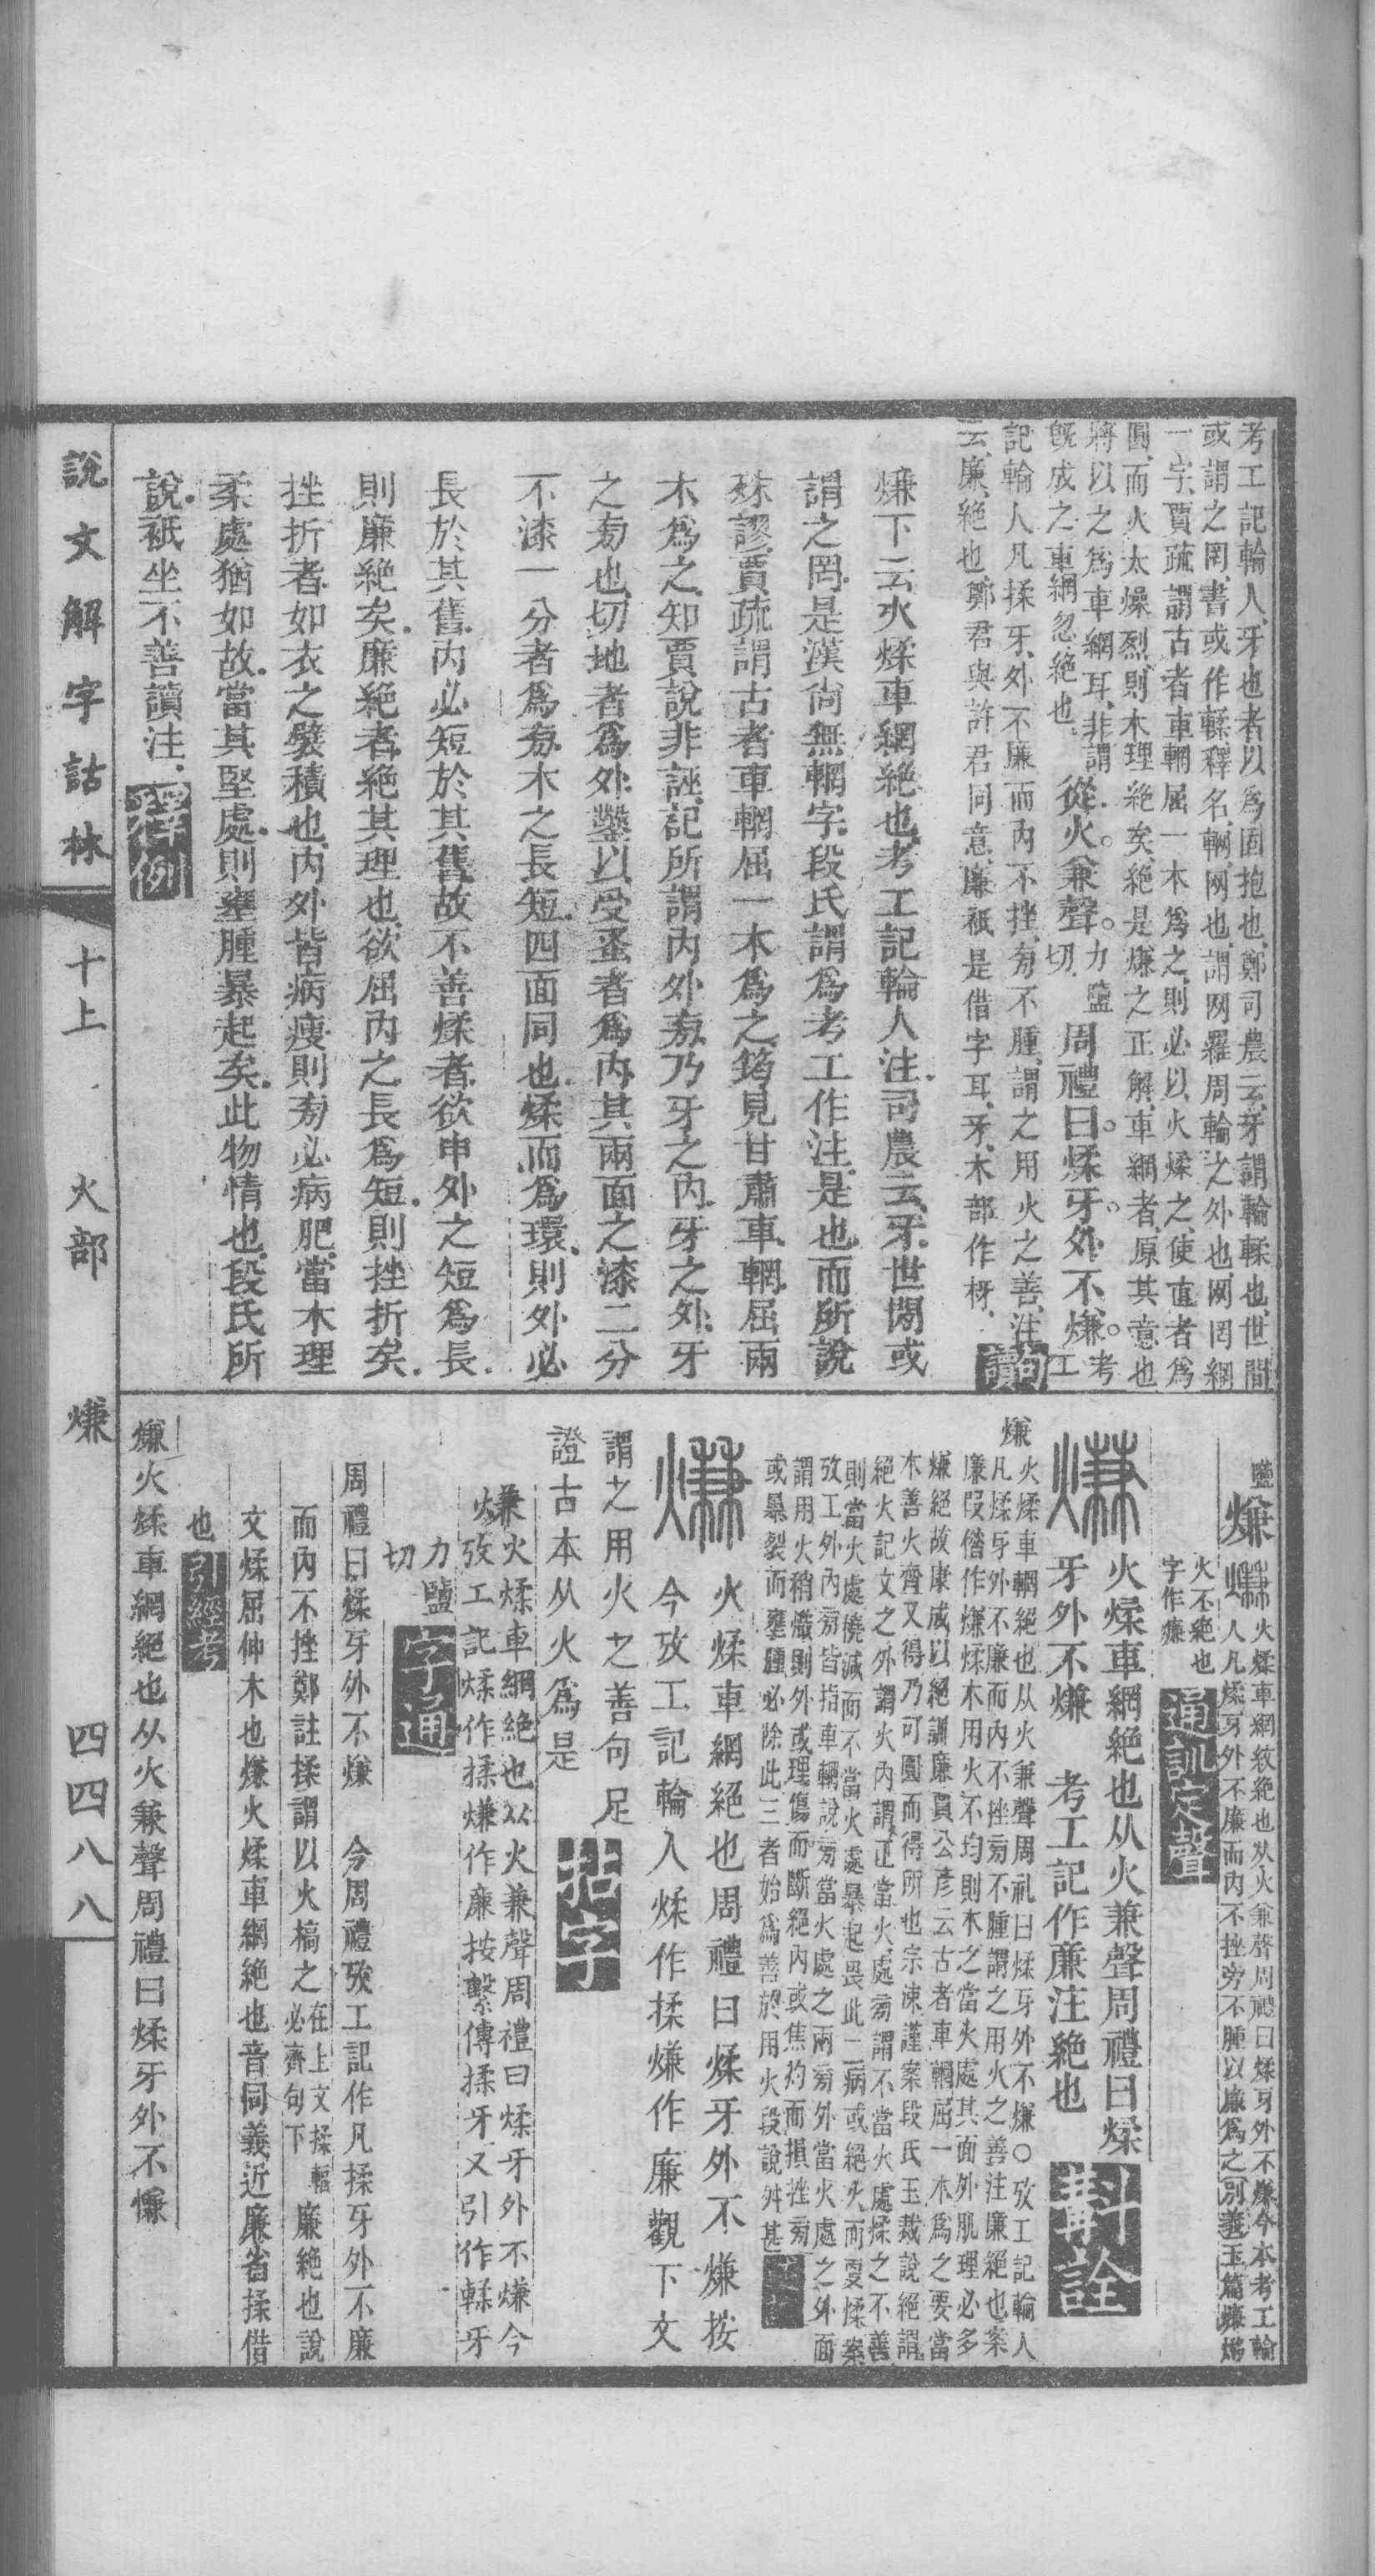 考工記輪人牙也者以爲固抱也鄭司農云牙謂輪輮也世閒
或謂之罔書或作輮釋名輞网也謂网羅周輪之外也网罔綱
一字賈疏謂古者車輞屈一木爲之則必以火煣之使直者爲
圓而火太燥烈則木理絶矣絶是熑之正解車網者原其意也
將以之爲車網耳非謂
旣成之車網忽絶也
從火兼聲
力鹽
切
周禮曰煣牙外不熑
考工
記輪人凡揉牙外不廉而內不挫㫄不腫謂之用火之善注
云廉絶也鄭君與許君同意廉祇是借字耳牙木部作枒
句讀
熑下云火煣車網絶也考工記輪人注司農云牙世閒或
謂之罔是漢尙無輞字段氏謂爲考工作注是也而所說
殊謬賈疏謂古者車輞屈一木爲之筠見甘肅車輞屈兩
木爲之知賈說非誣記所謂內外㫄乃牙之內牙之外牙
之㫄也切地者爲外鑿以受蚤者爲內其兩面之漆二分
不漆一分者爲㫄木之長短四面同也煣而爲環則外必
長於其舊內必短於其舊故不善煣者欲申外之短爲長
則廉絶矣廉絶者絶其理也欲屈內之長爲短則挫折矣
挫折者如衣之襞積也內外皆病瘦則㫄必病肥當木理
柔處猶如故當其堅處則壅腫暴起矣此物情也段氏所
說祇坐不善讀注
釋例
鹽
熑
火煣車網紋絶也从火兼聲周禮曰煣牙外不熑今本考工輪
人凡煣牙外不廉而內不挫旁不腫以廉爲之別義玉篇熑㷙
火不絶也
字作熑
通訓定聲
火煣車網絶也从火兼聲周禮曰煣
牙外不熑 考工記作廉注絶也
斠詮
熑
火煣車輞絶也从火兼聲周礼曰煣牙外不熑○攷工記輪人
凡煣牙外不廉而內不挫㫄不腫謂之用火之善注廉絶也案
廉叚借作熑煣木用火不均則木之當火處其面外肌理必多
熑絶故康成以絶訓廉賈公彥云古者車輞屈一木爲之要當
木善火齊又得乃可圓而得所也宗涑謹案段氏玉裁說絕謂
絕火記文之外謂火內謂正當火處㫄謂不當火處煣之不善
則當火處燒減而不當火處暴起畏此二病或絕火而更煣案
攷工外內㫄皆指車輞說㫄當火處之兩㫄外當火處之外面
謂用火稍熾則外或理傷而斷絕內或焦灼而損挫㫄
或暴裂而壅腫必除此三者始爲善於用火段說舛甚
火煣車網絕也周禮曰煣牙外不熑按
今攷工記輪人煣作揉熑作廉觀下文
謂之用火之善句足
證古本从火爲是
古字
熑
火煣車網絶也从火兼聲周禮曰煣牙外不熑今
攷工記煣作揉熑作廉按繫傳揉牙又引作輮牙
力鹽
切
字通
周禮曰煣牙外不熑 今周禮攷工記作凡揉牙外不廉
而內不挫鄭註揉謂以火槁之
在上文揉輻
必齊句下
廉絶也說
文煣屈伸木也熑火煣車網絶也音同義近廉省揉借
也
引經考
熑火煣車網絕也从火兼聲周禮曰煣牙外不熑
說文解字詁林
十上
火部
熑
四四八八